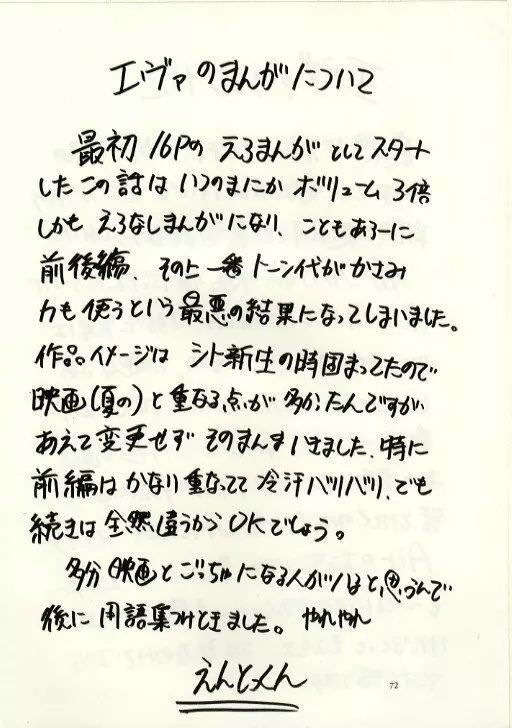 エヴァのまんがについて
最初16Pのえろまんがとしてスタート
したこの話はいつのまにかボリューム3倍
しかもえろなしまんがになり、こともあろーに
前後編、その上一番トーン代がかさみ
力も使うという最悪の結果になってしまいました。
作品イメージはシト新生の時固まってたので
映画(夏の)と重なる点が多かったんですが
あえて変更せずそのまんまいきました。特に
前編はかなり重なってて冷汗バリバリ、でも
続きは全然違うからOKでしょう。
多分映画とごっちゃになる人がいると思うんで
後に用語集つけときました。やれやれ
えんとっくん
72